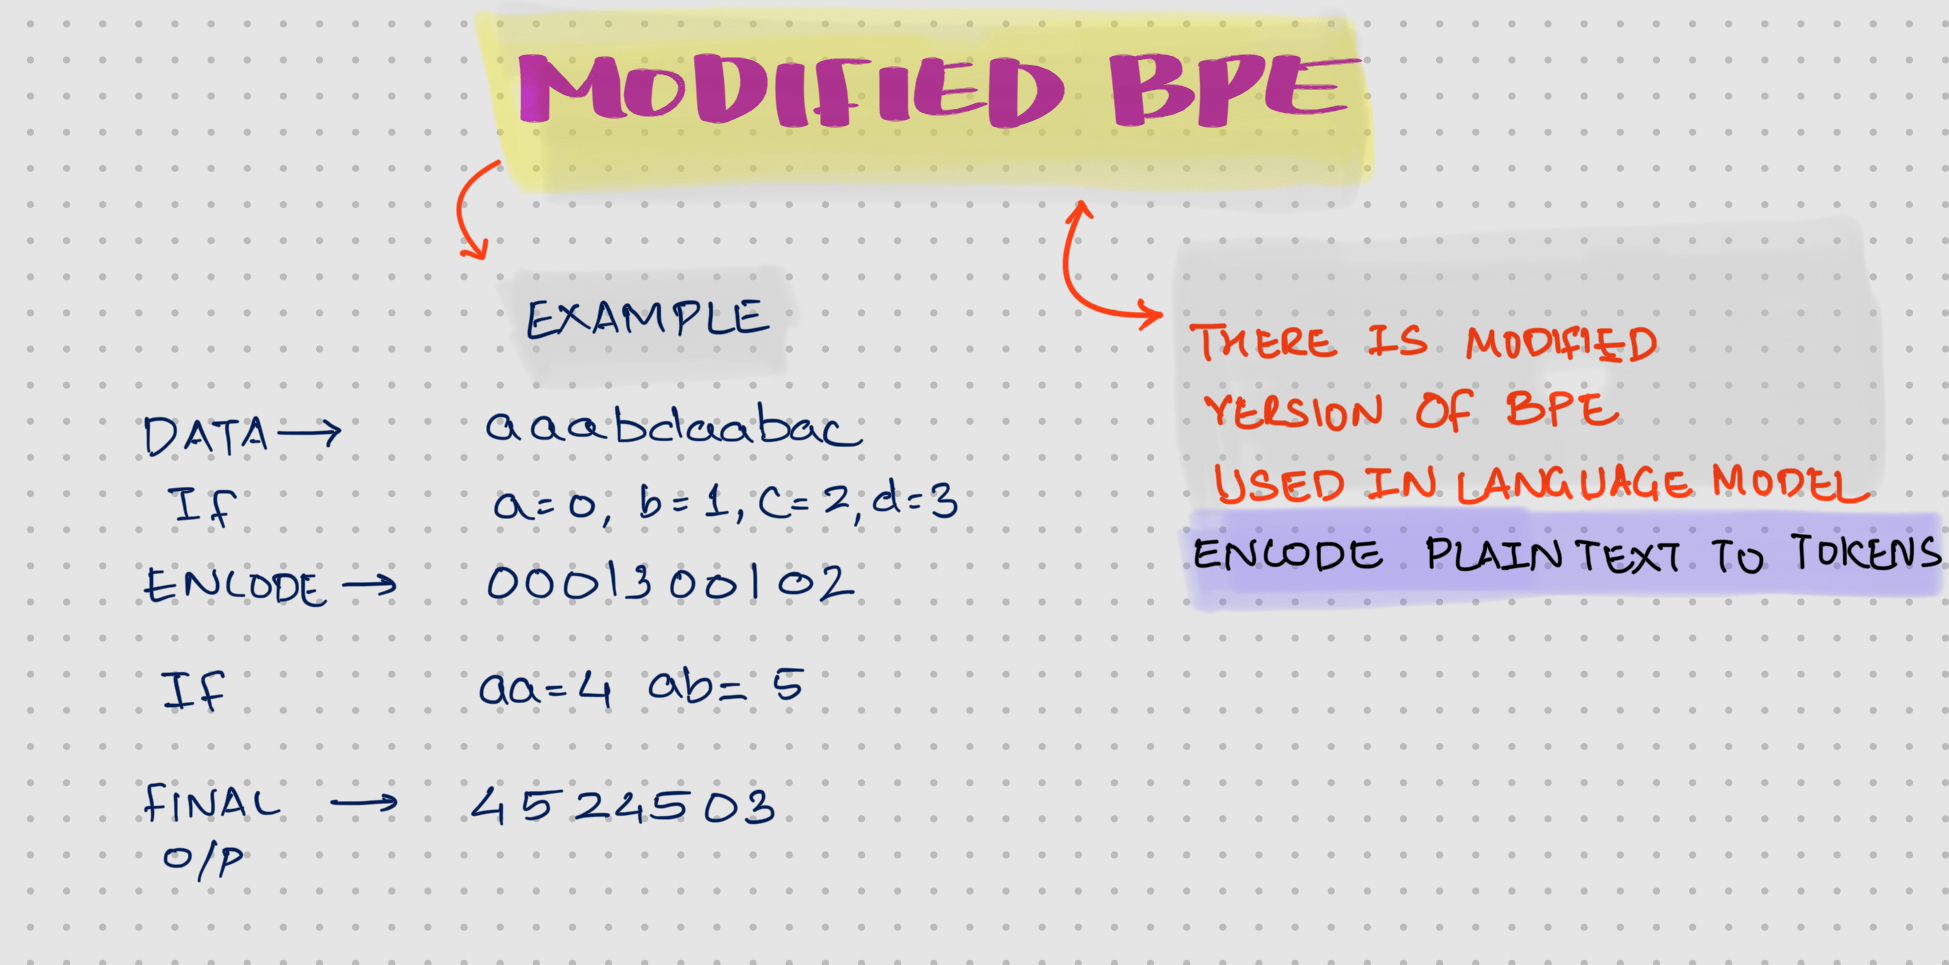 MODIFIED BPE
EXAMPLE
DATA → aaabdaabac
If a=0, b=1, C=2, d=3
ENCODE → 0001300102
If aa=4 ab=5
FINAL → 4524503
O/P
THERE IS MODIFIED
VERSION OF BPE
USED IN LANGUAGE MODEL
ENCODE PLAIN TEXT TO TOKENS